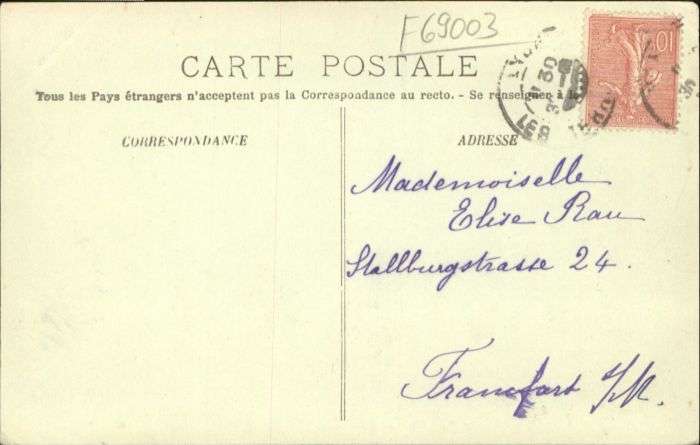 F69003
CARTE POSTALE
Tous les Pays étrangers n'acceptent pas la Correspondance au recto. - Se renseigner à la
CORRESPONDANCE
ADRESSE
Mademoiselle
Elise Rau
Stallburgstrasse 24.
Francfort s/M.
10